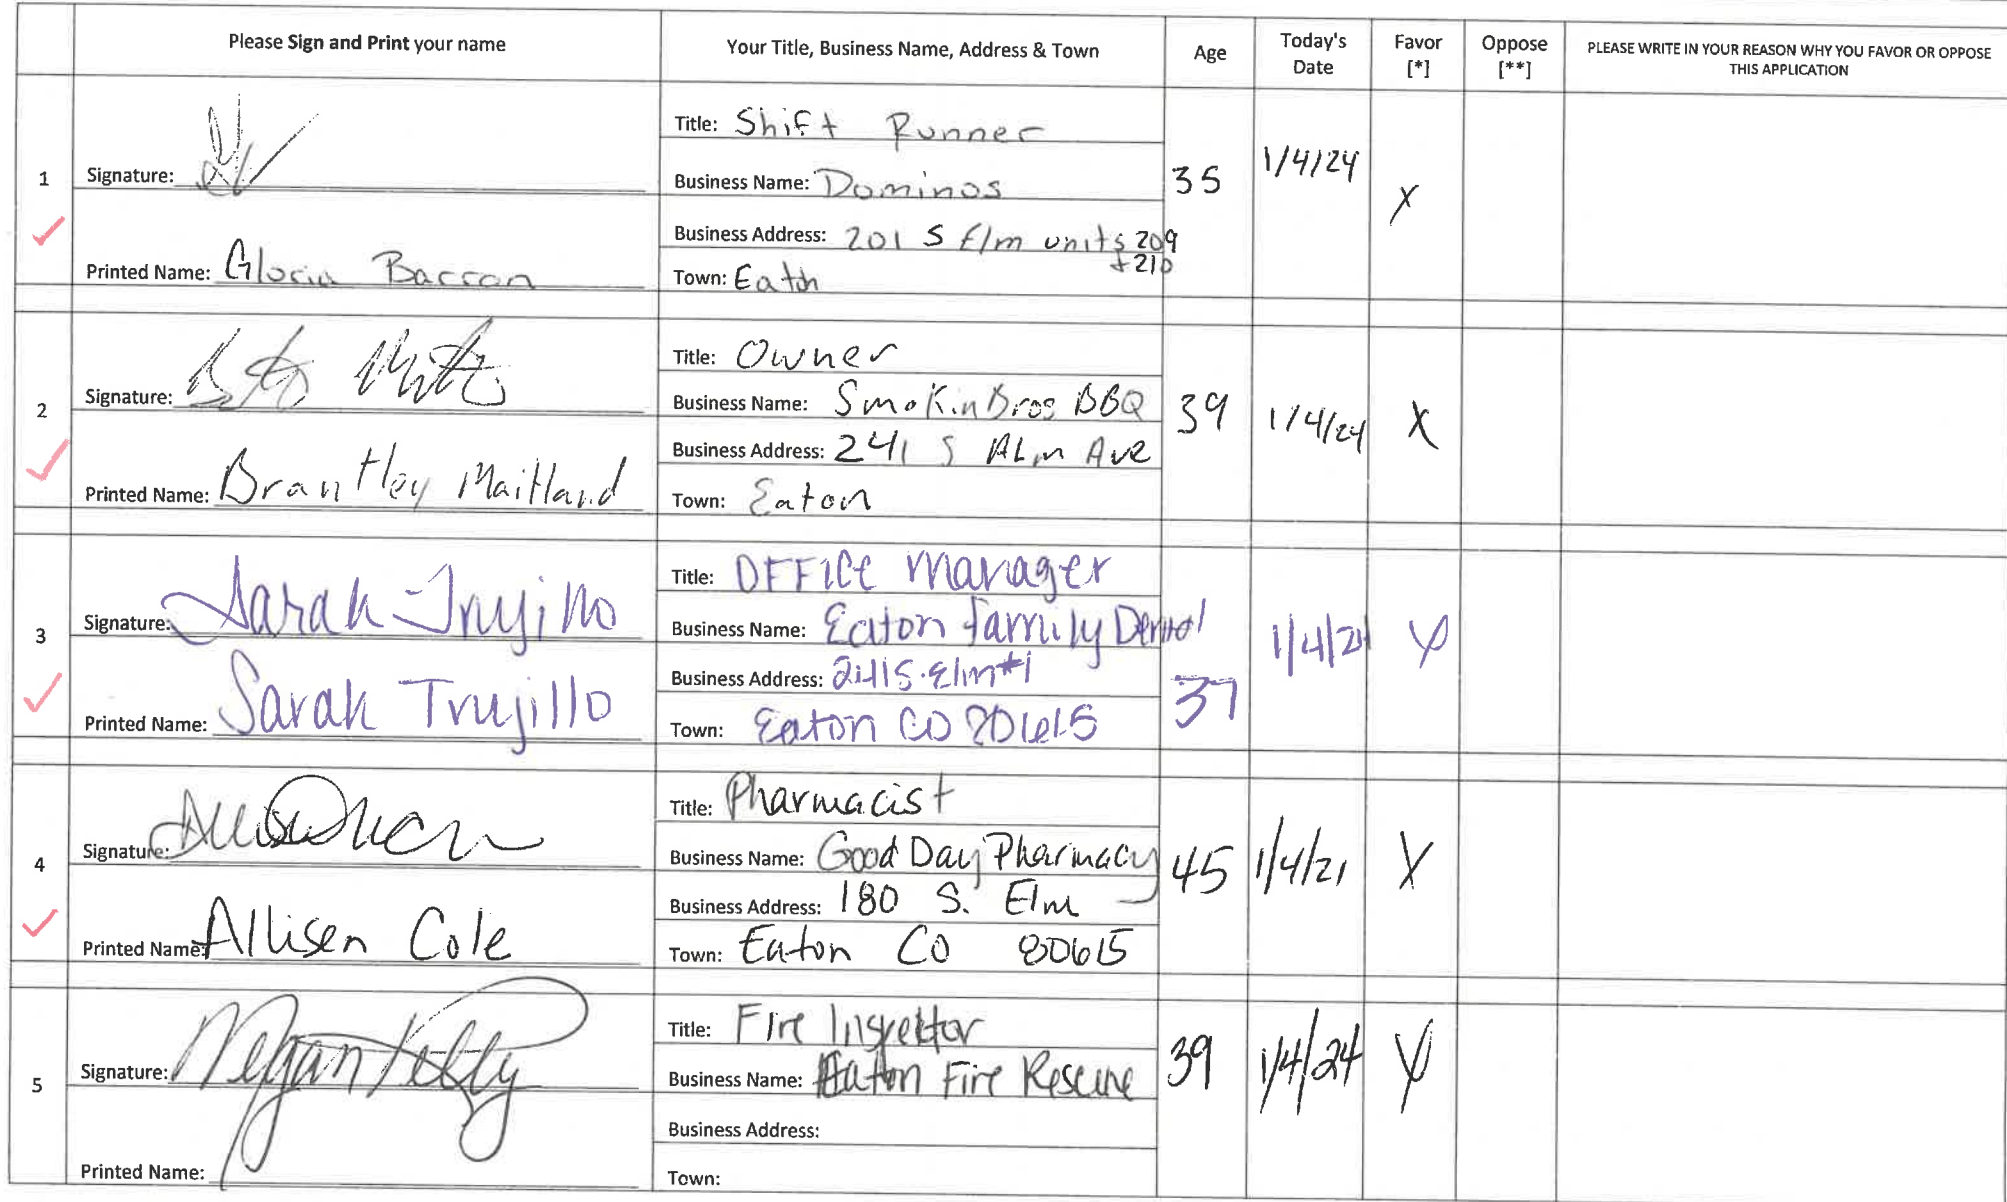 Please Sign and Print your name
Your Title, Business Name, Address & Town
Age
Today's Date
Favor [*]
Oppose [**]
PLEASE WRITE IN YOUR REASON WHY YOU FAVOR OR OPPOSE THIS APPLICATION
1
Signature:
Printed Name: Gloria Barron
Title: Shift Runner
Business Name: Dominos
Business Address: 201 S Elm units 209
+ 210
Town: Eaton
35
1/4/24
X
2
Signature:
Printed Name: Brantley Maitland
Title: Owner
Business Name: SmoKin Bros BBQ
Business Address: 241 S ALm Ave
Town: Eaton
39
1/4/24
X
3
Signature: Sarah Trujillo
Printed Name: Sarah Trujillo
Title: OFFICE Manager
Business Name: Eaton Family Dental
Business Address: 241 S. Elm #1
Town: Eaton CO 80615
37
1/4/24
X
4
Signature:
Printed Name: Allisen Cole
Title: Pharmacist
Business Name: Good Day Pharmacy
Business Address: 180 S. Elm
Town: Eaton CO 80615
45
1/4/21
X
5
Signature: Megan
Printed Name:
Title: Fire Inspector
Business Name: Eaton Fire Rescue
Business Address:
Town:
39
1/4/24
X